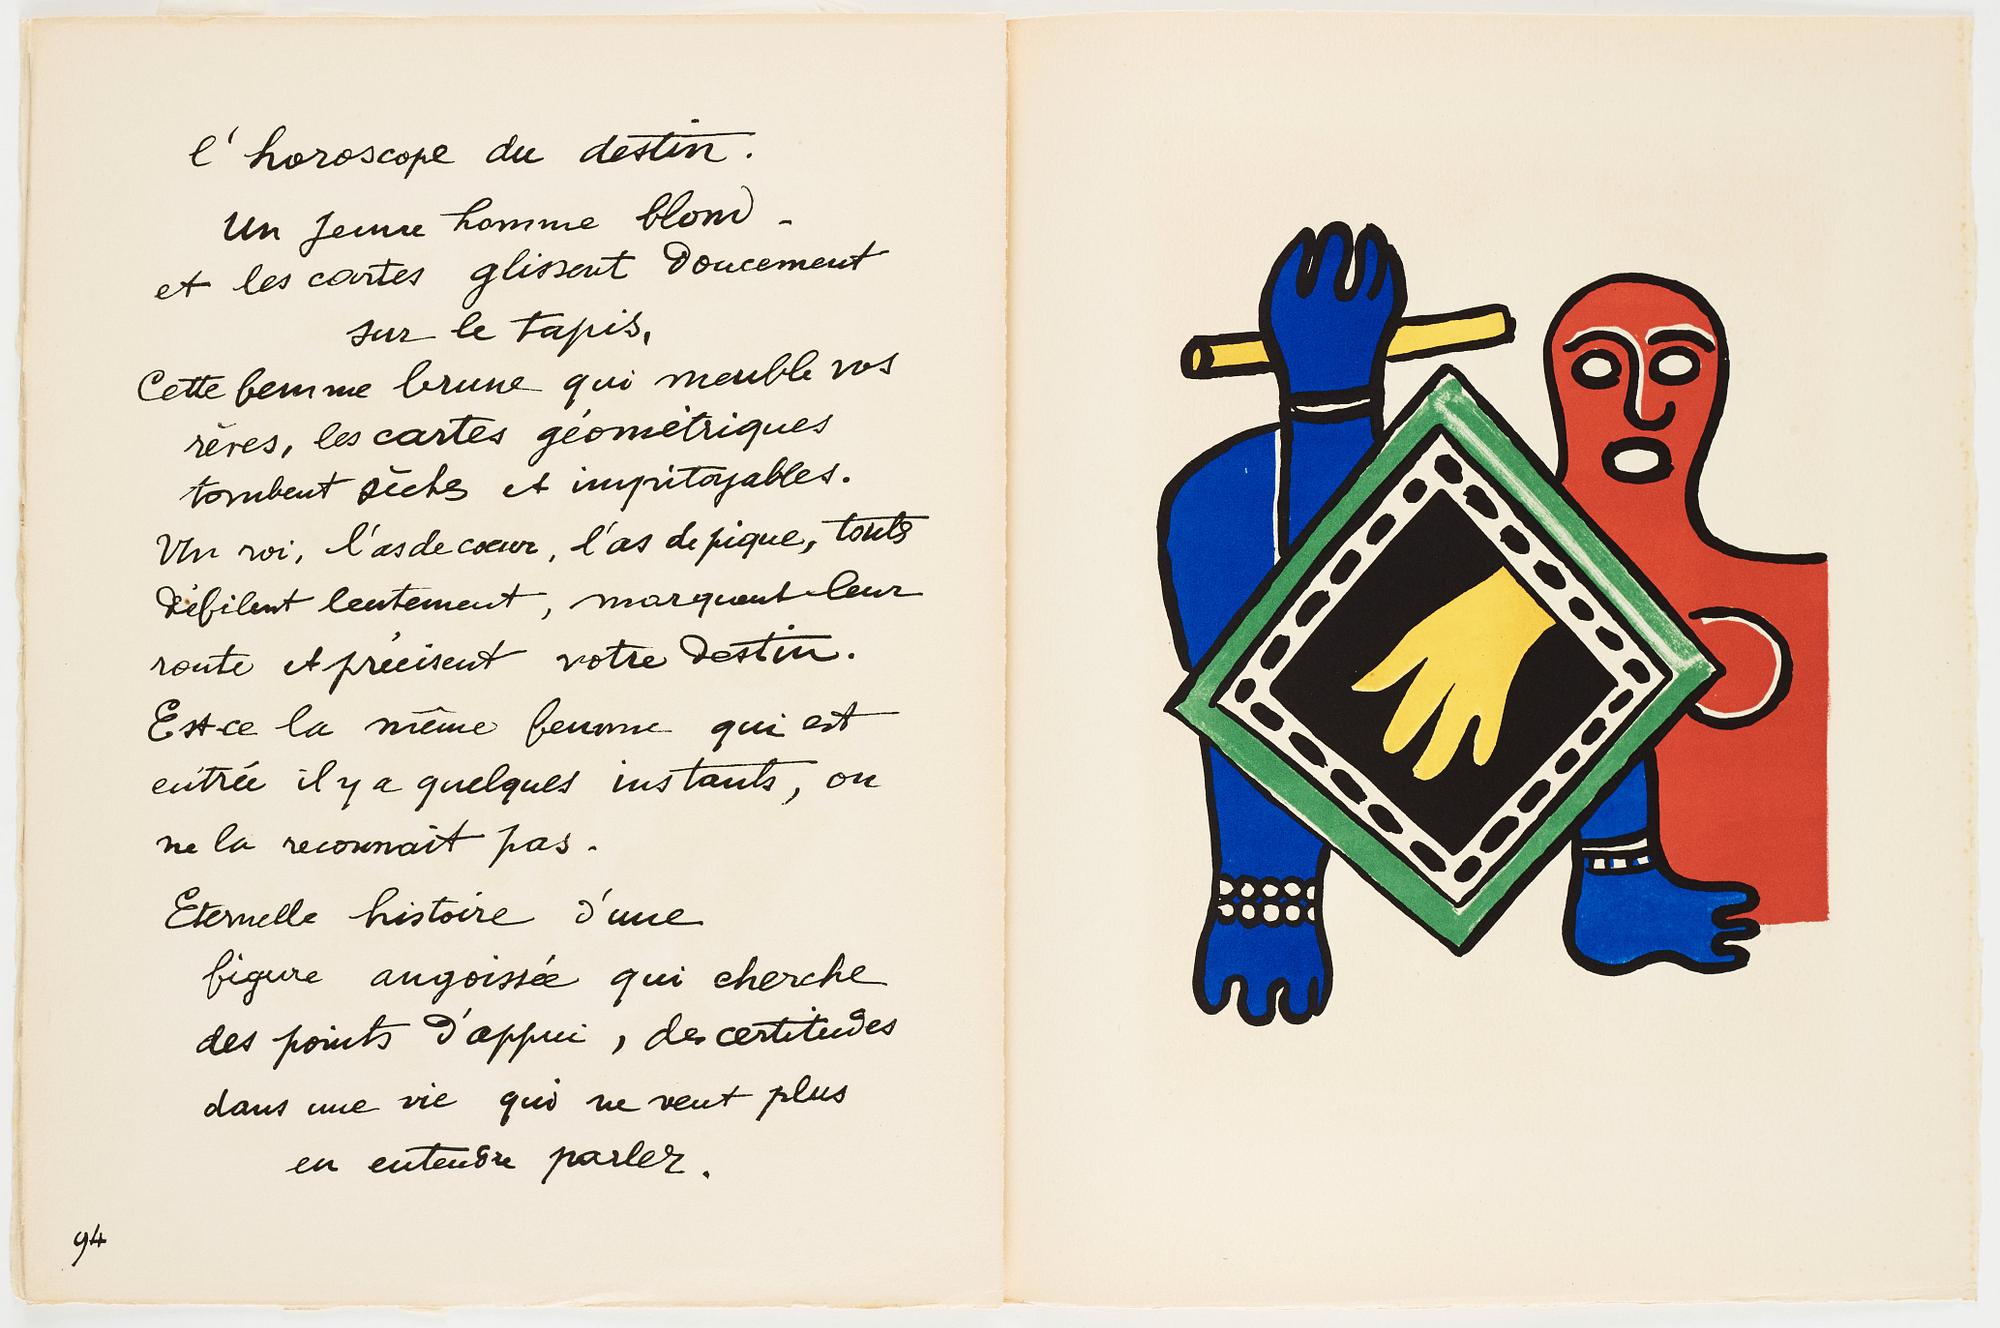 l'horoscope du destin.
Un jeune homme blond -
et les cartes glissent doucement
sur le tapis,
Cette femme brune qui meuble vos
rêves, les cartes géométriques
tombent sèches et impitoyables.
Un roi, l'as de coeur, l'as de pique, touts
défilent lentement, marquent leur
route et précisent votre destin.
Est-ce la même femme qui est
entrée il y a quelques instants, on
ne la reconnait pas.
Eternelle histoire d'une
figure angoissée qui cherche
des points d'appui, des certitudes
dans une vie qui ne veut plus
en entendre parler.
94